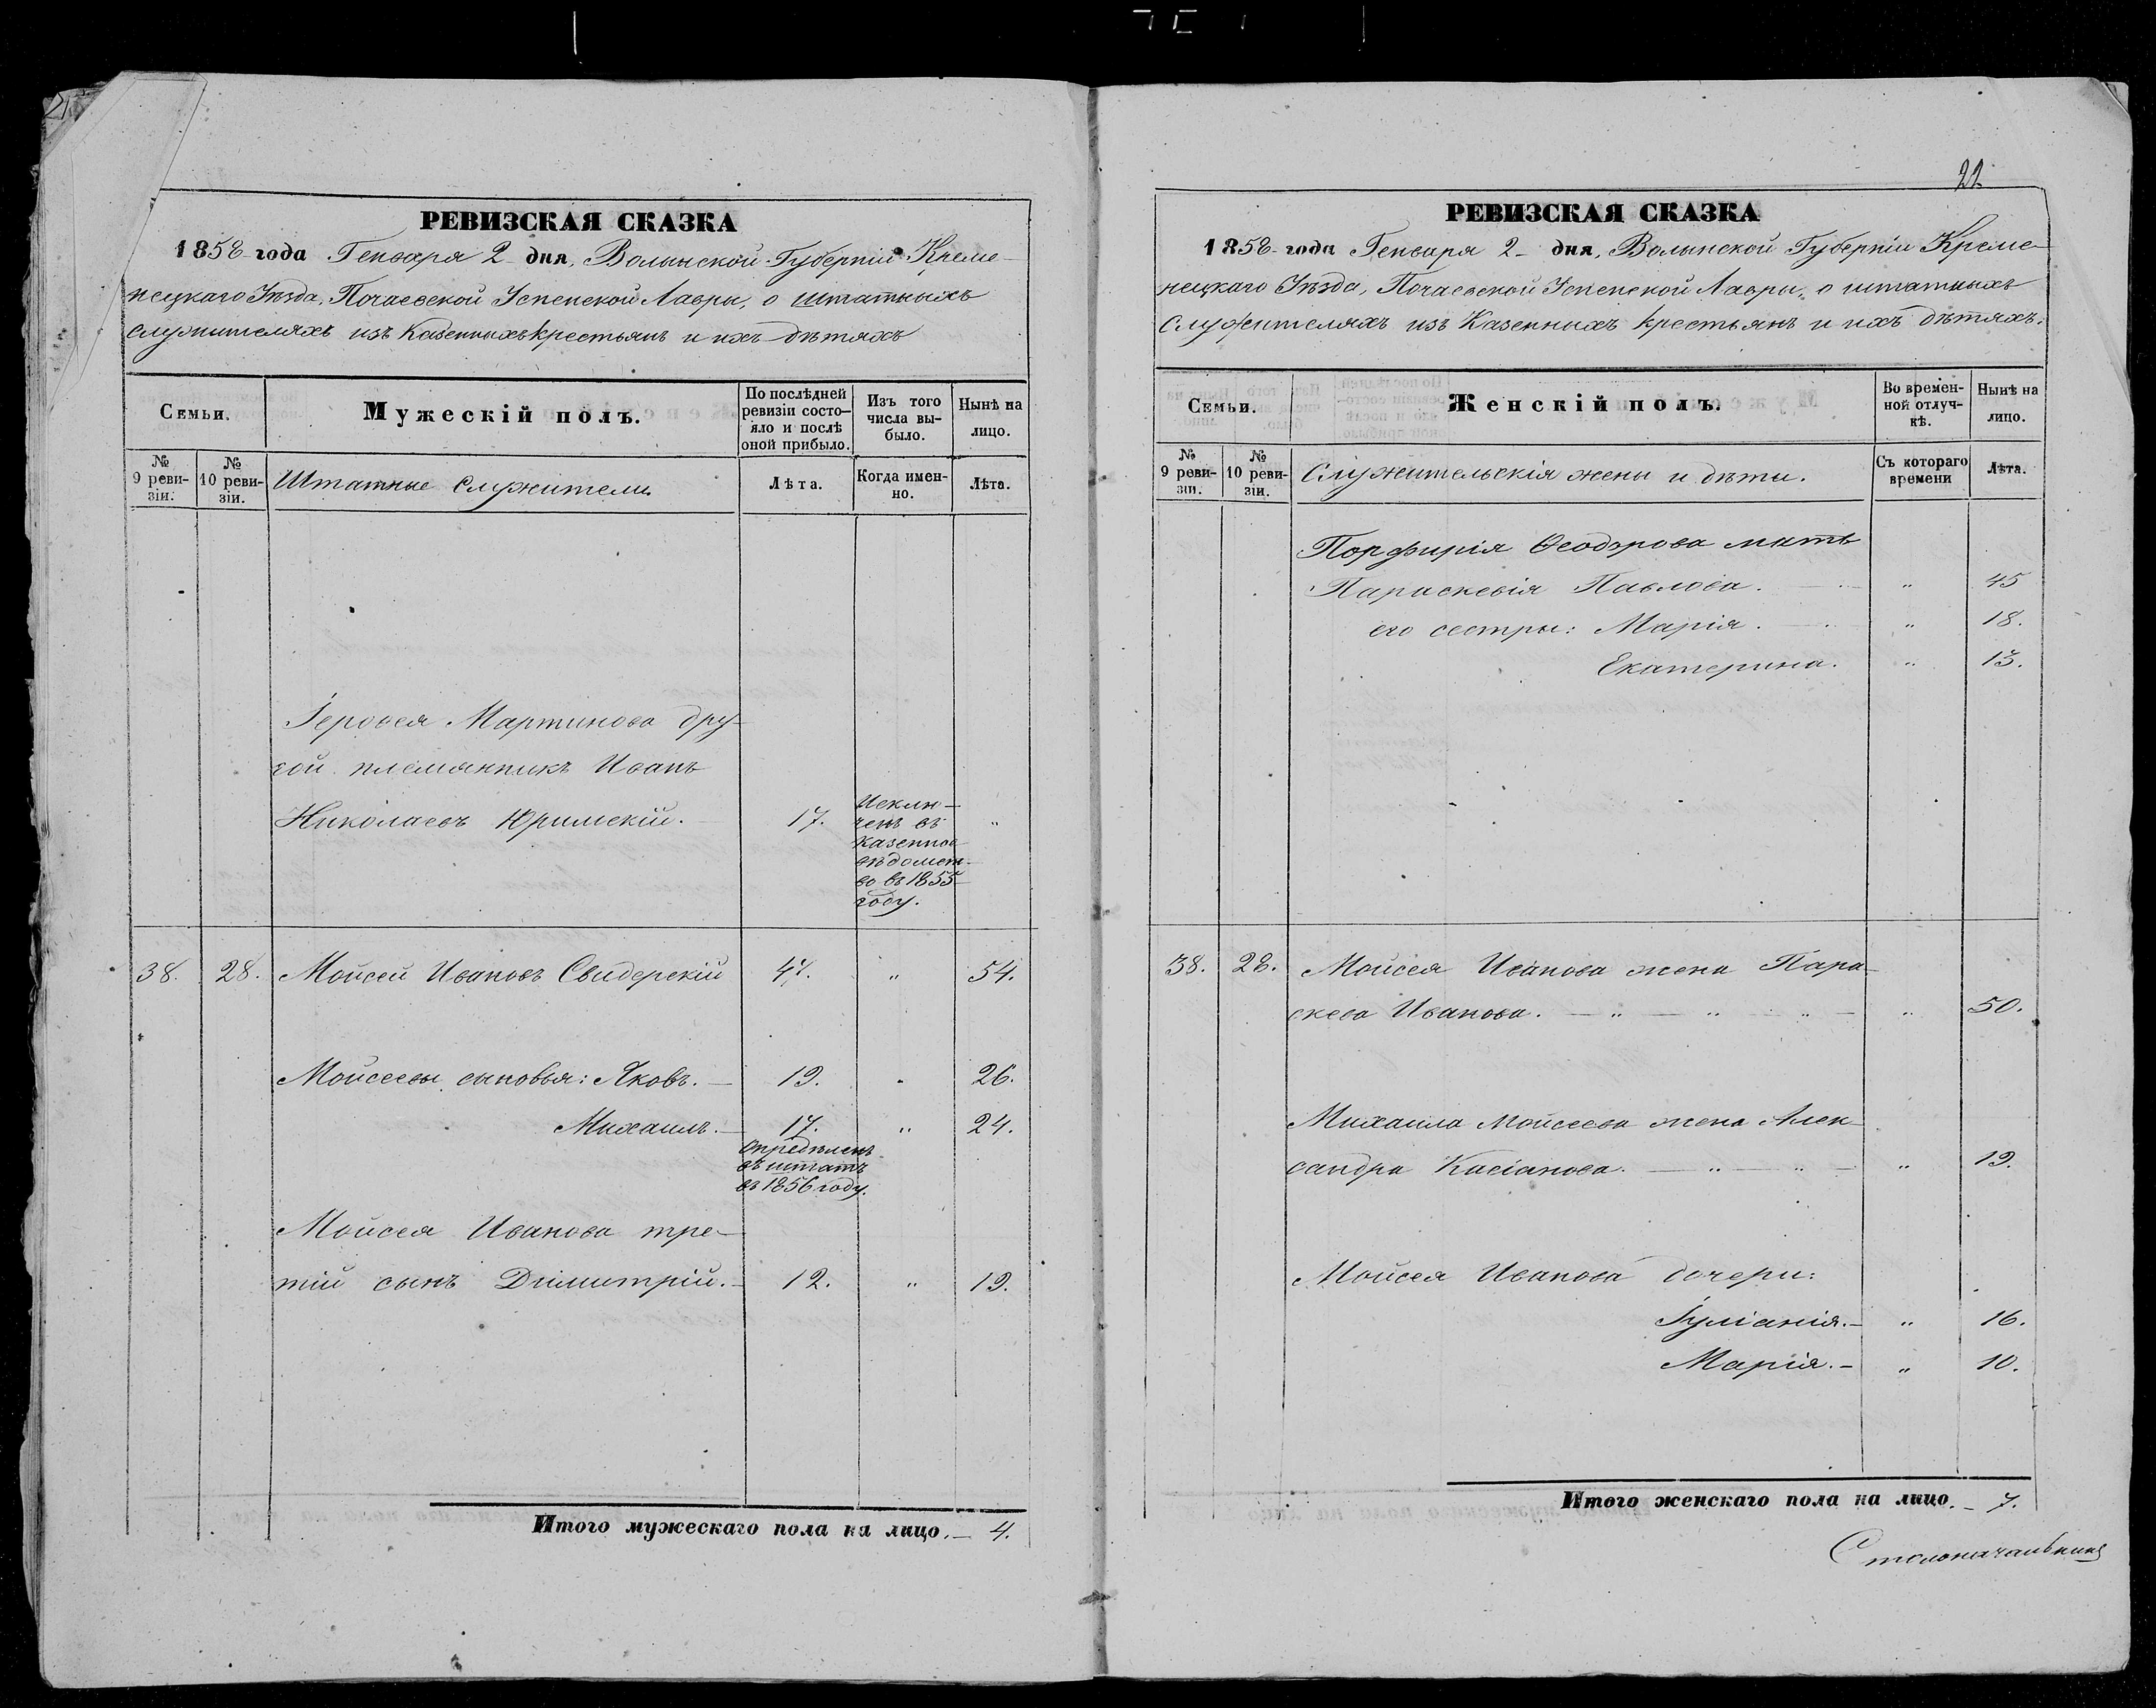 РЕВИЗСКАЯ СКАЗКА
1858 года Генваря 2 дня, Волынской Губерніи Креме-
нецкаго Уѣзда, Почаевской Успенской Лавры, о штатныхъ
служителяхъ изъ Казенныхъ крестьянъ и ихъ дѣтяхъ
Семьи.
Мужескій полъ.
По послѣдней
ревизіи состо-
яло и послѣ
оной прибыло.
Изъ того
числа вы-
было.
Нынѣ на
лицо.
№
9 реви-
зіи.
№
10 реви-
зіи.
Штатные Служители
Лѣта.
Когда имен-
но.
Лѣта.
Мартинова дру-
гой племянникъ Иванъ
Николаевъ Кримскій. 17. "
Исклю-
ченъ въ
казенное
вѣдомст-
во въ 1855
году.
38. 28. Мойсей Ивановъ Свидерскій 47. " 54.
Мойсеевы сыновья: Яковъ. — 19. " 26.
Михаилъ. — 17. " 24.
Опредѣленъ
въ штатъ
въ 1856 году.
Мойсея Иванова тре-
тій сынъ Димитрій. — 12. " 19.
Итого мужескаго пола на лицо. — 4.
21.
РЕВИЗСКАЯ СКАЗКА
1858 года Генваря 2 дня, Волынской Губерніи Креме-
нецкаго Уѣзда, Почаевской Успенской Лавры, о штатныхъ
Служителяхъ изъ Казенныхъ крестьянъ и ихъ дѣтяхъ.
Семьи.
Женскій полъ.
Во времен-
ной отлуч-
кѣ.
Нынѣ на
лицо.
№
9 реви-
зіи.
№
10 реви-
зіи.
Служительскія жены и дѣти.
Съ котораго
времени
Лѣта.
Порфирія Ѳеодорова мать
Параскевія Павлова. " 45
его сестры: Марія. " 18.
Екатерина. " 13.
38. 28. Мойсея Иванова жена Пара-
скева Иванова. — " — " — " — " 50.
Михаила Мойсеева жена Алек-
сандра Касіанова. — " — " — " 19.
Мойсея Иванова дочери:
Іуліанія. — " 16.
Марія. — " 10.
Итого женскаго пола на лицо. — 7.
Столоначальникъ